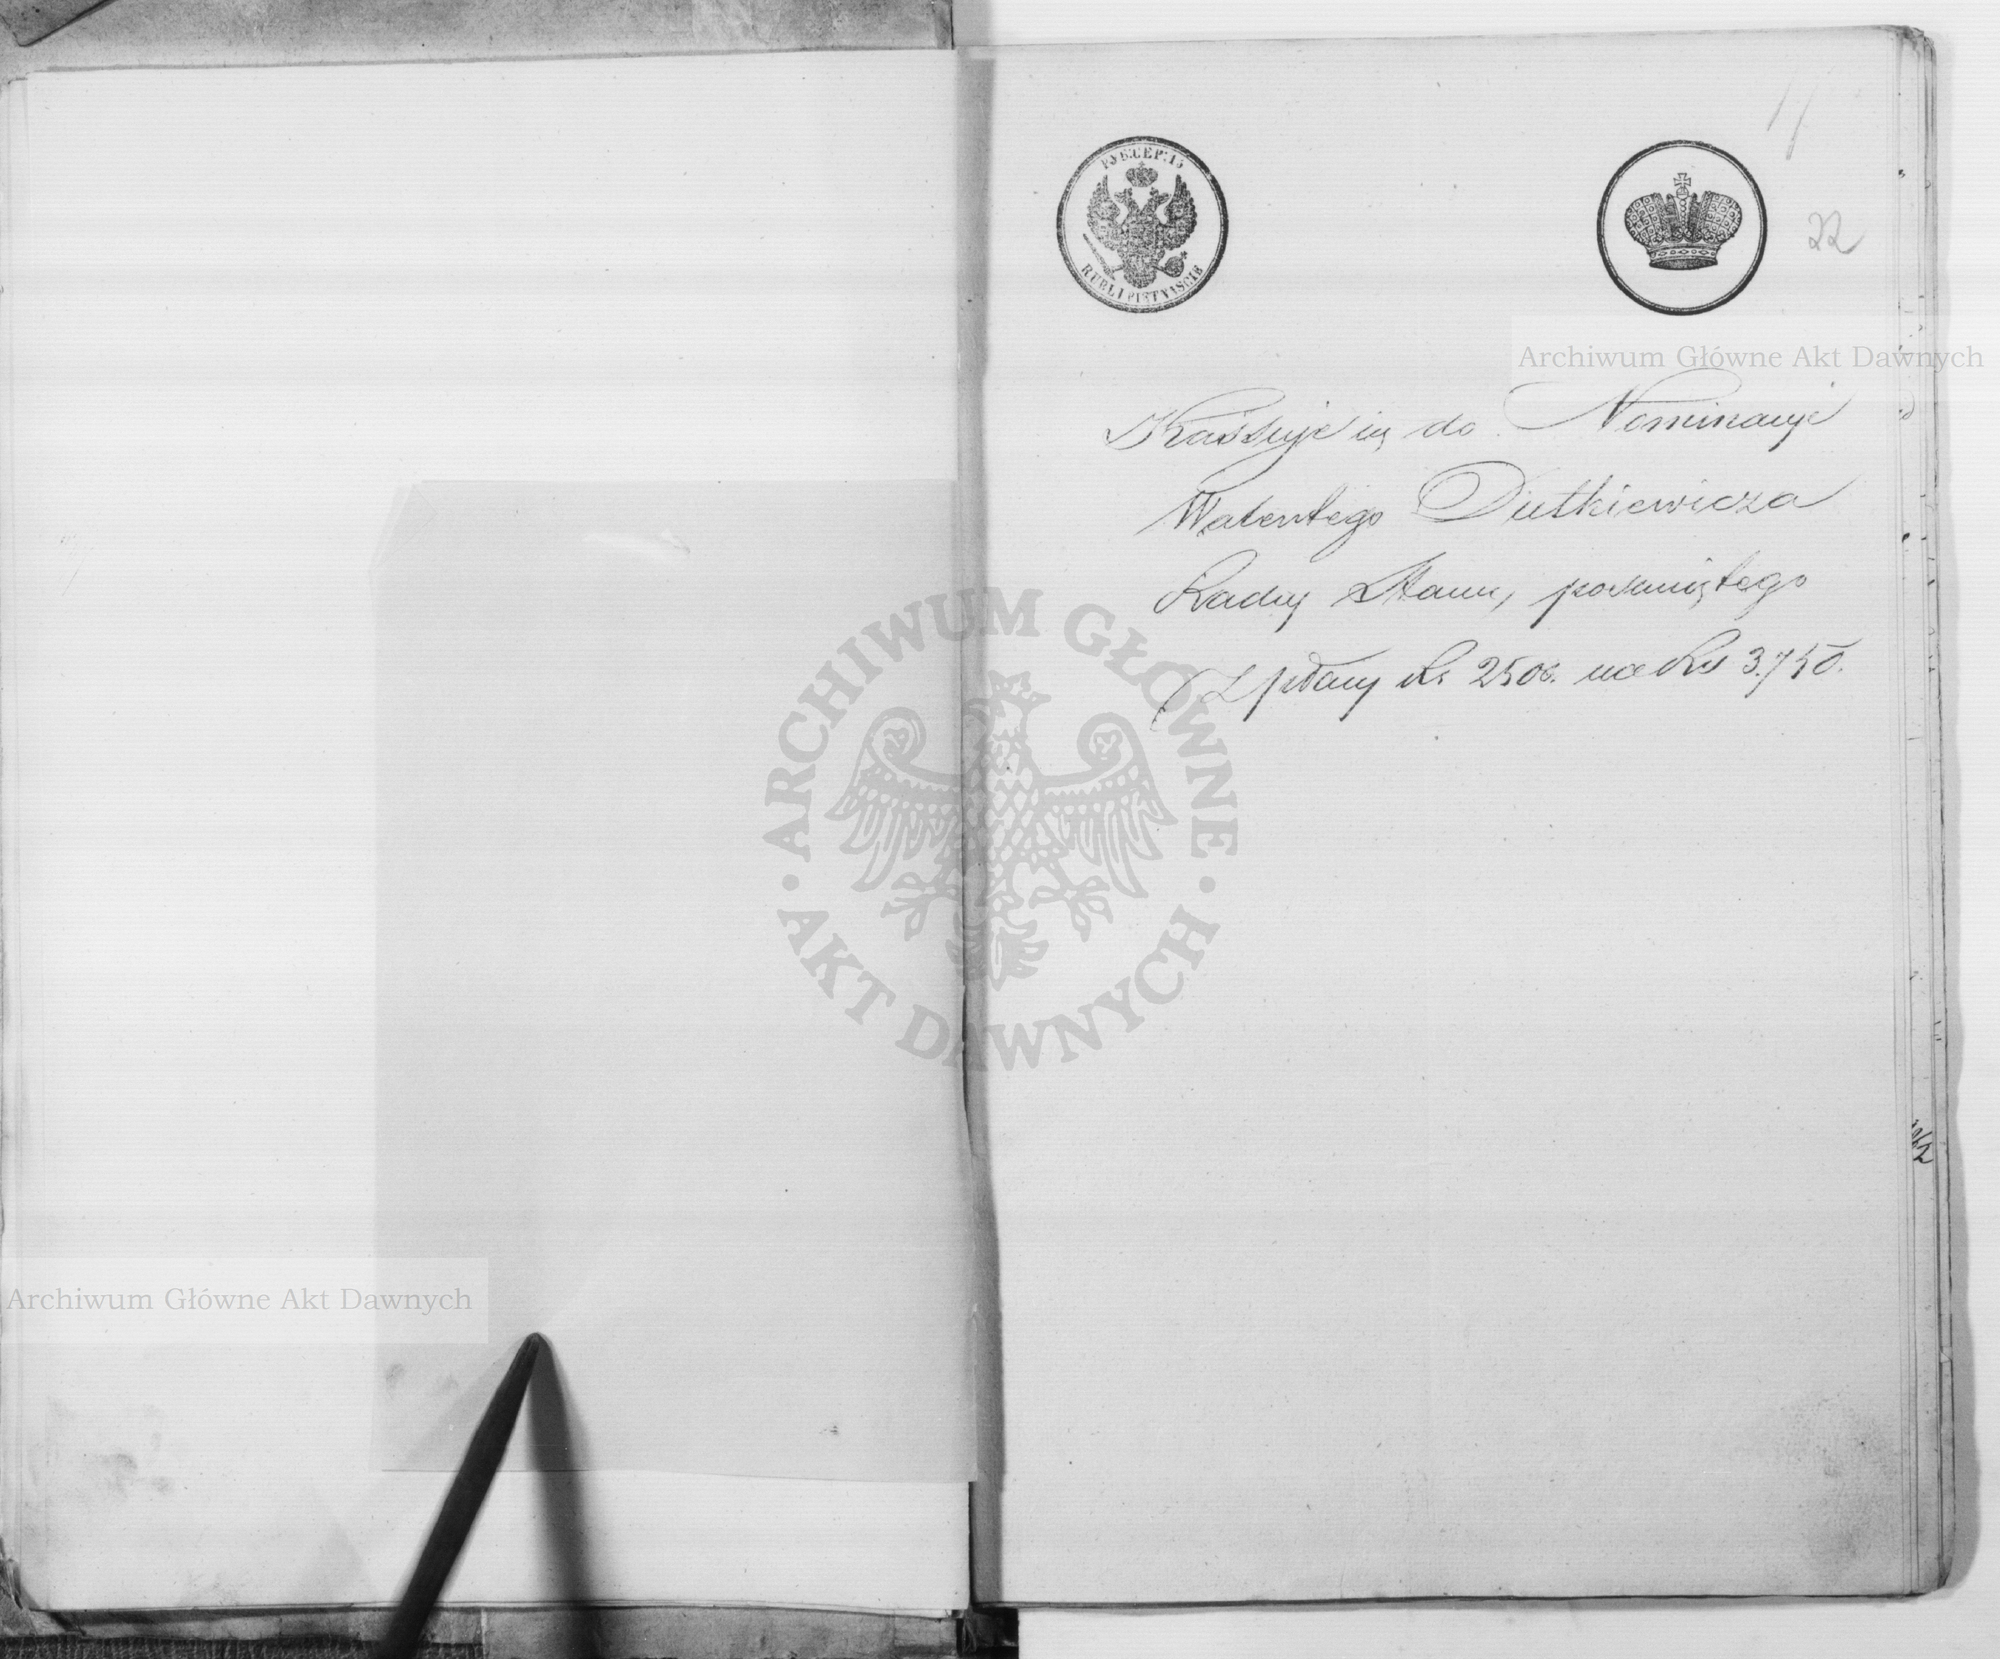 РУБ.СЕР: 15
RUBLI PIĘTNAŚCIE
22
Archiwum Główne Akt Dawnych
Kassuje się do Nominacyi
Walentego Dutkiewicza
Radcy Stanu, posuniętego
z płacy Rs 2500. na Rs 3.750.
ARCHIWUM GŁÓWNE
AKT DAWNYCH
Archiwum Główne Akt Dawnych